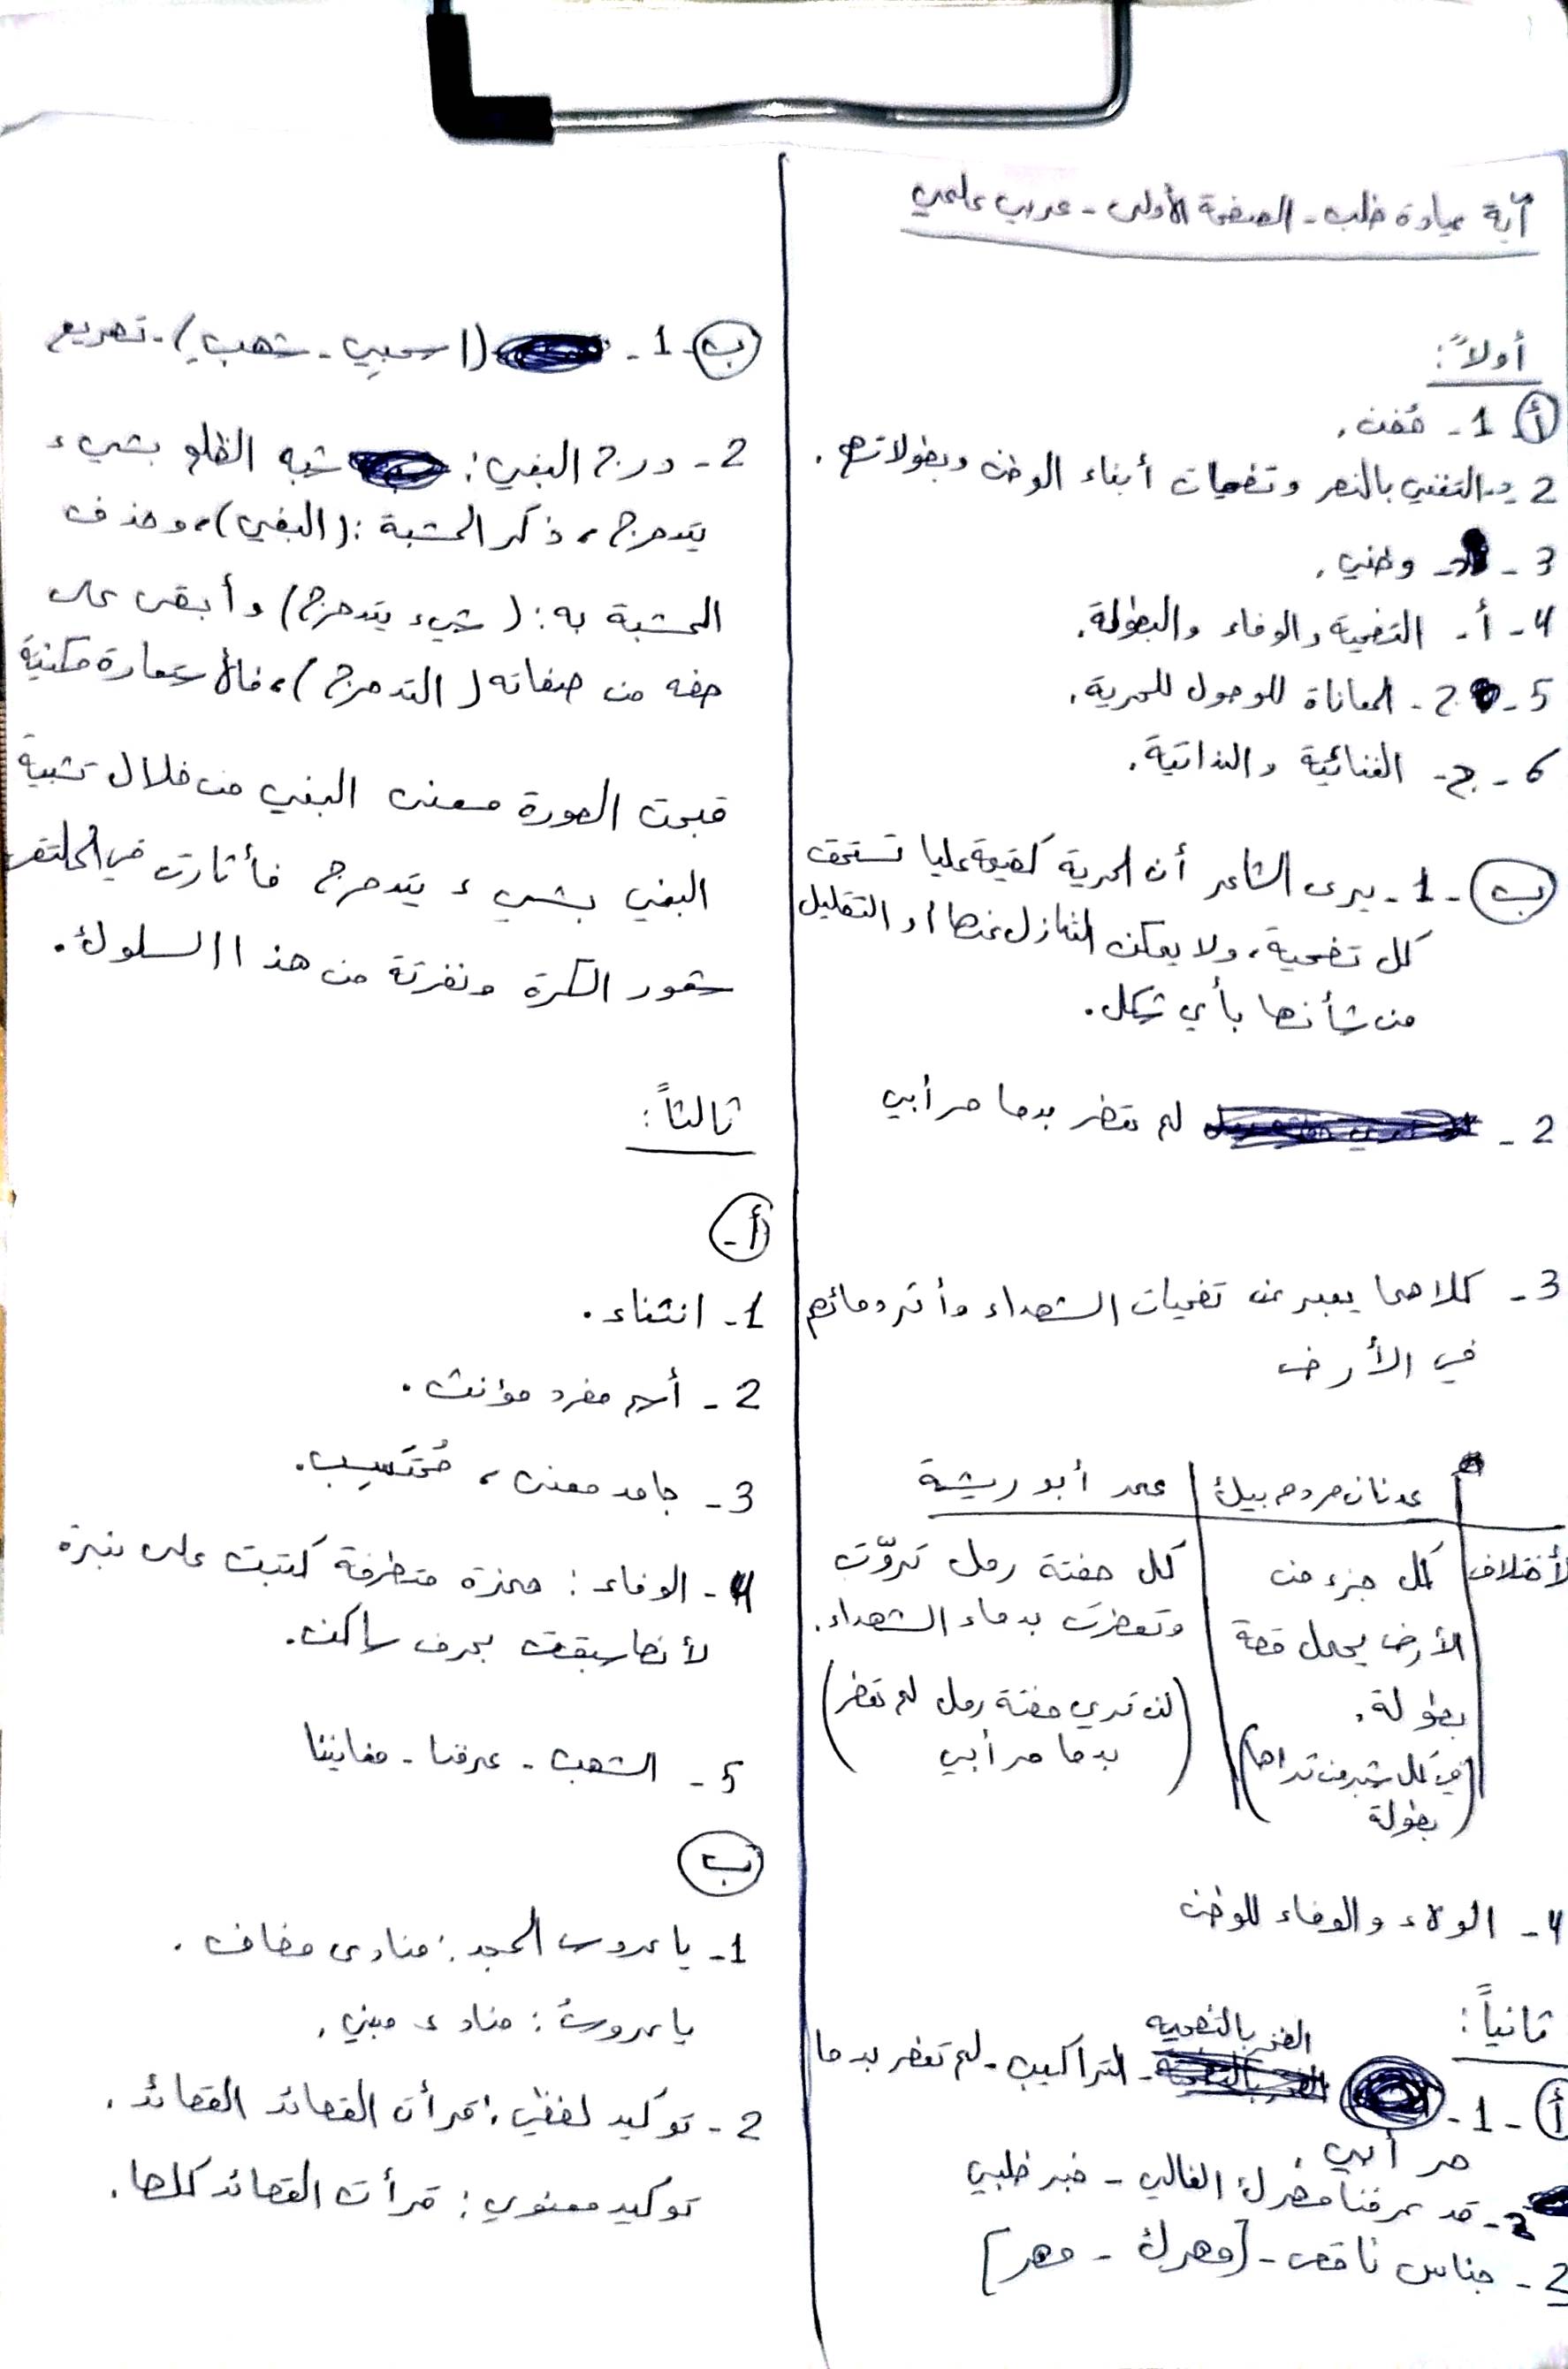 آية عيادة خلب - الصفحة الأولى - عربي علمي
أولاً:
أ 1 - مُغن.
2 د- التغني بالنصر وتضحيات أبناء الوطن وبطولاتهم.
3 - وطني.
4 - أ - التضحية والوفاء والبطولة.
5 - ج - المعاناة للوصول للحرية.
6 - ج - الغنائية والذاتية.
ب - 1 - يرى الشاعر أن الحرية كقيمة عليا تستحق
كل تضحية، ولا يمكن التنازل عنها أو التقليل
من شأنها بأي شكل.
2 - لم تعطر بدما حر أبي
3 - كلاهما يعبر عن تضحيات الشهداء وأثر دمائهم
في الأرض
عدنان مردم بيك | عمر أبو ريشة
الأختلاف | كل جزء من | كل حفنة رمل تروّت
الأرض يحمل قصة | وتعطرت بدماء الشهداء.
بطولة. | (لن تري حفنة رمل لم تعطر
(في كل شبر من ثراها | بدما حر أبي)
بطولة)
4 - الولاء والوفاء للوطن
ثانياً:
الفخر بالتضحية
أ - 1 - التراكيب - لم تعطر بدما
حر أبي.
3 - قد عرفنا مهرك الغالي - خبر طلبي
2 - جناس ناقص - [مهرك - مهر]
ب - 1 - (اسحبي - شهب) - تصريع
2 - درج البغي: شبه الظلم بشيء
يتدحرج، ذكر المشبة: (البغي)، وحذف
المشبة به: (شيء يتدحرج) وأبقى على
صفه من صفاته (التدحرج)، فالأستعارة مكنية
قبحت الصورة معنى البغي من خلال تشبية
البغي بشيء يتدحرج فأثارت في المتلقي
شعور الكرة ونفرتة من هذا السلوك.
ثالثاً:
أ -
1 - انثناء.
2 - أسم مفرد مؤنث.
3 - جامد معنى، مُحْتَسِب.
4 - الوفاء: همزة متطرفة كتبت على نبرة
لأنها سبقت بحرف ساكن.
5 - الشهب - عرفنا - مغانينا
ب
1 - يا عروس المجد: منادى مضاف.
يا عروسُ: مناد ء مبني.
2 - توكيد لفظي: قرأت القصائد القصائد.
توكيد معنوي: قرأت القصائد كلها.